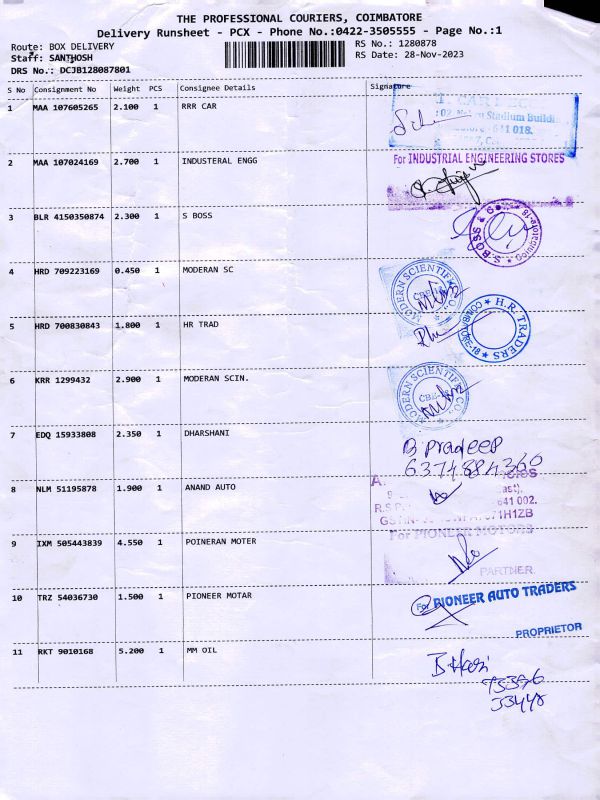 THE PROFESSIONAL COURIERS, COIMBATORE
Delivery Runsheet - PCX - Phone No.:0422-3505555 - Page No.:1
Route: BOX DELIVERY
RS No.: 1280878
Staff: SANTHOSH
RS Date: 28-Nov-2023
DRS No.: DCJB128087801
S No Consignment No Weight PCS Consignee Details Signature
1 MAA 107605265 2.100 1 RRR CAR
Stadium Buildin
641 018.
2 MAA 107024169 2.700 1 INDUSTERAL ENGG
For INDUSTRIAL ENGINEERING STORES
3 BLR 4150350874 2.300 1 S BOSS
S. BOSS & Co. Coimbatore-18
4 HRD 709223169 0.450 1 MODERAN SC
MODERN SCIENTIFIC CO. CBE-18
5 HRD 700830843 1.800 1 HR TRAD
H.R. TRADERS COIMBATORE-18
6 KRR 1299432 2.900 1 MODERAN SCIN.
MODERN SCIENTIFIC CO. CBE-18
7 EDQ 15933808 2.350 1 DHARSHANI
B Pradeep
6374884360
8 NLM 51195878 1.900 1 ANAND AUTO
641 002.
9 IXM 505443839 4.550 1 POINERAN MOTER
For PIONEER MOTORS
PARTNER.
10 TRZ 54036730 1.500 1 PIONEER MOTAR
For PIONEER AUTO TRADERS
PROPRIETOR
11 RKT 9010168 5.200 1 MM OIL
B Hari
33448